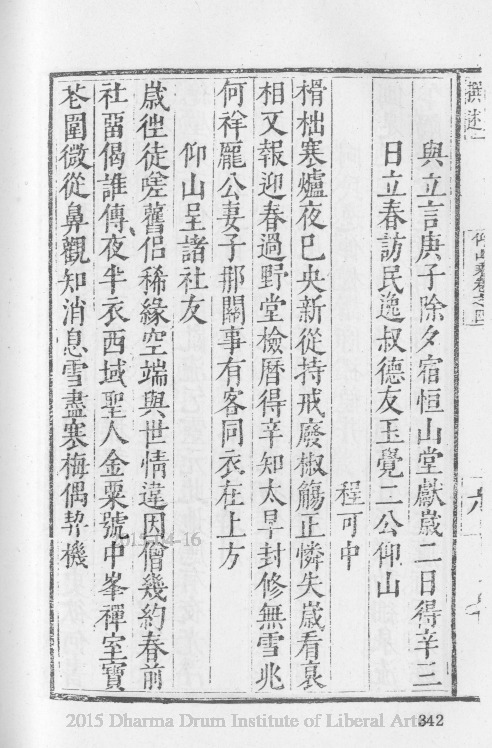 撰述
仰山乘卷之四
六
與立言庚子除夕宿恒山堂獻歲二日得辛三
日立春訪民逸叔德友玉覺二公仰山
程可中
榾柮寒爐夜已央新從持戒廢椒觴正憐失歲看哀
相又報迎春過野堂檢曆得辛知太旱封修無雪兆
何祥龐公妻子那關事有客同衣在上方
仰山呈諸社友
歲徃徒嗟舊侶稀緣空端與世情違因僧幾約春前
社畱偈誰傳夜半衣西域聖人金粟號中峯禪室寶
花圍微從鼻觀知消息雪盡寒梅偶契機
2015 Dharma Drum Institute of Liberal Arts
342